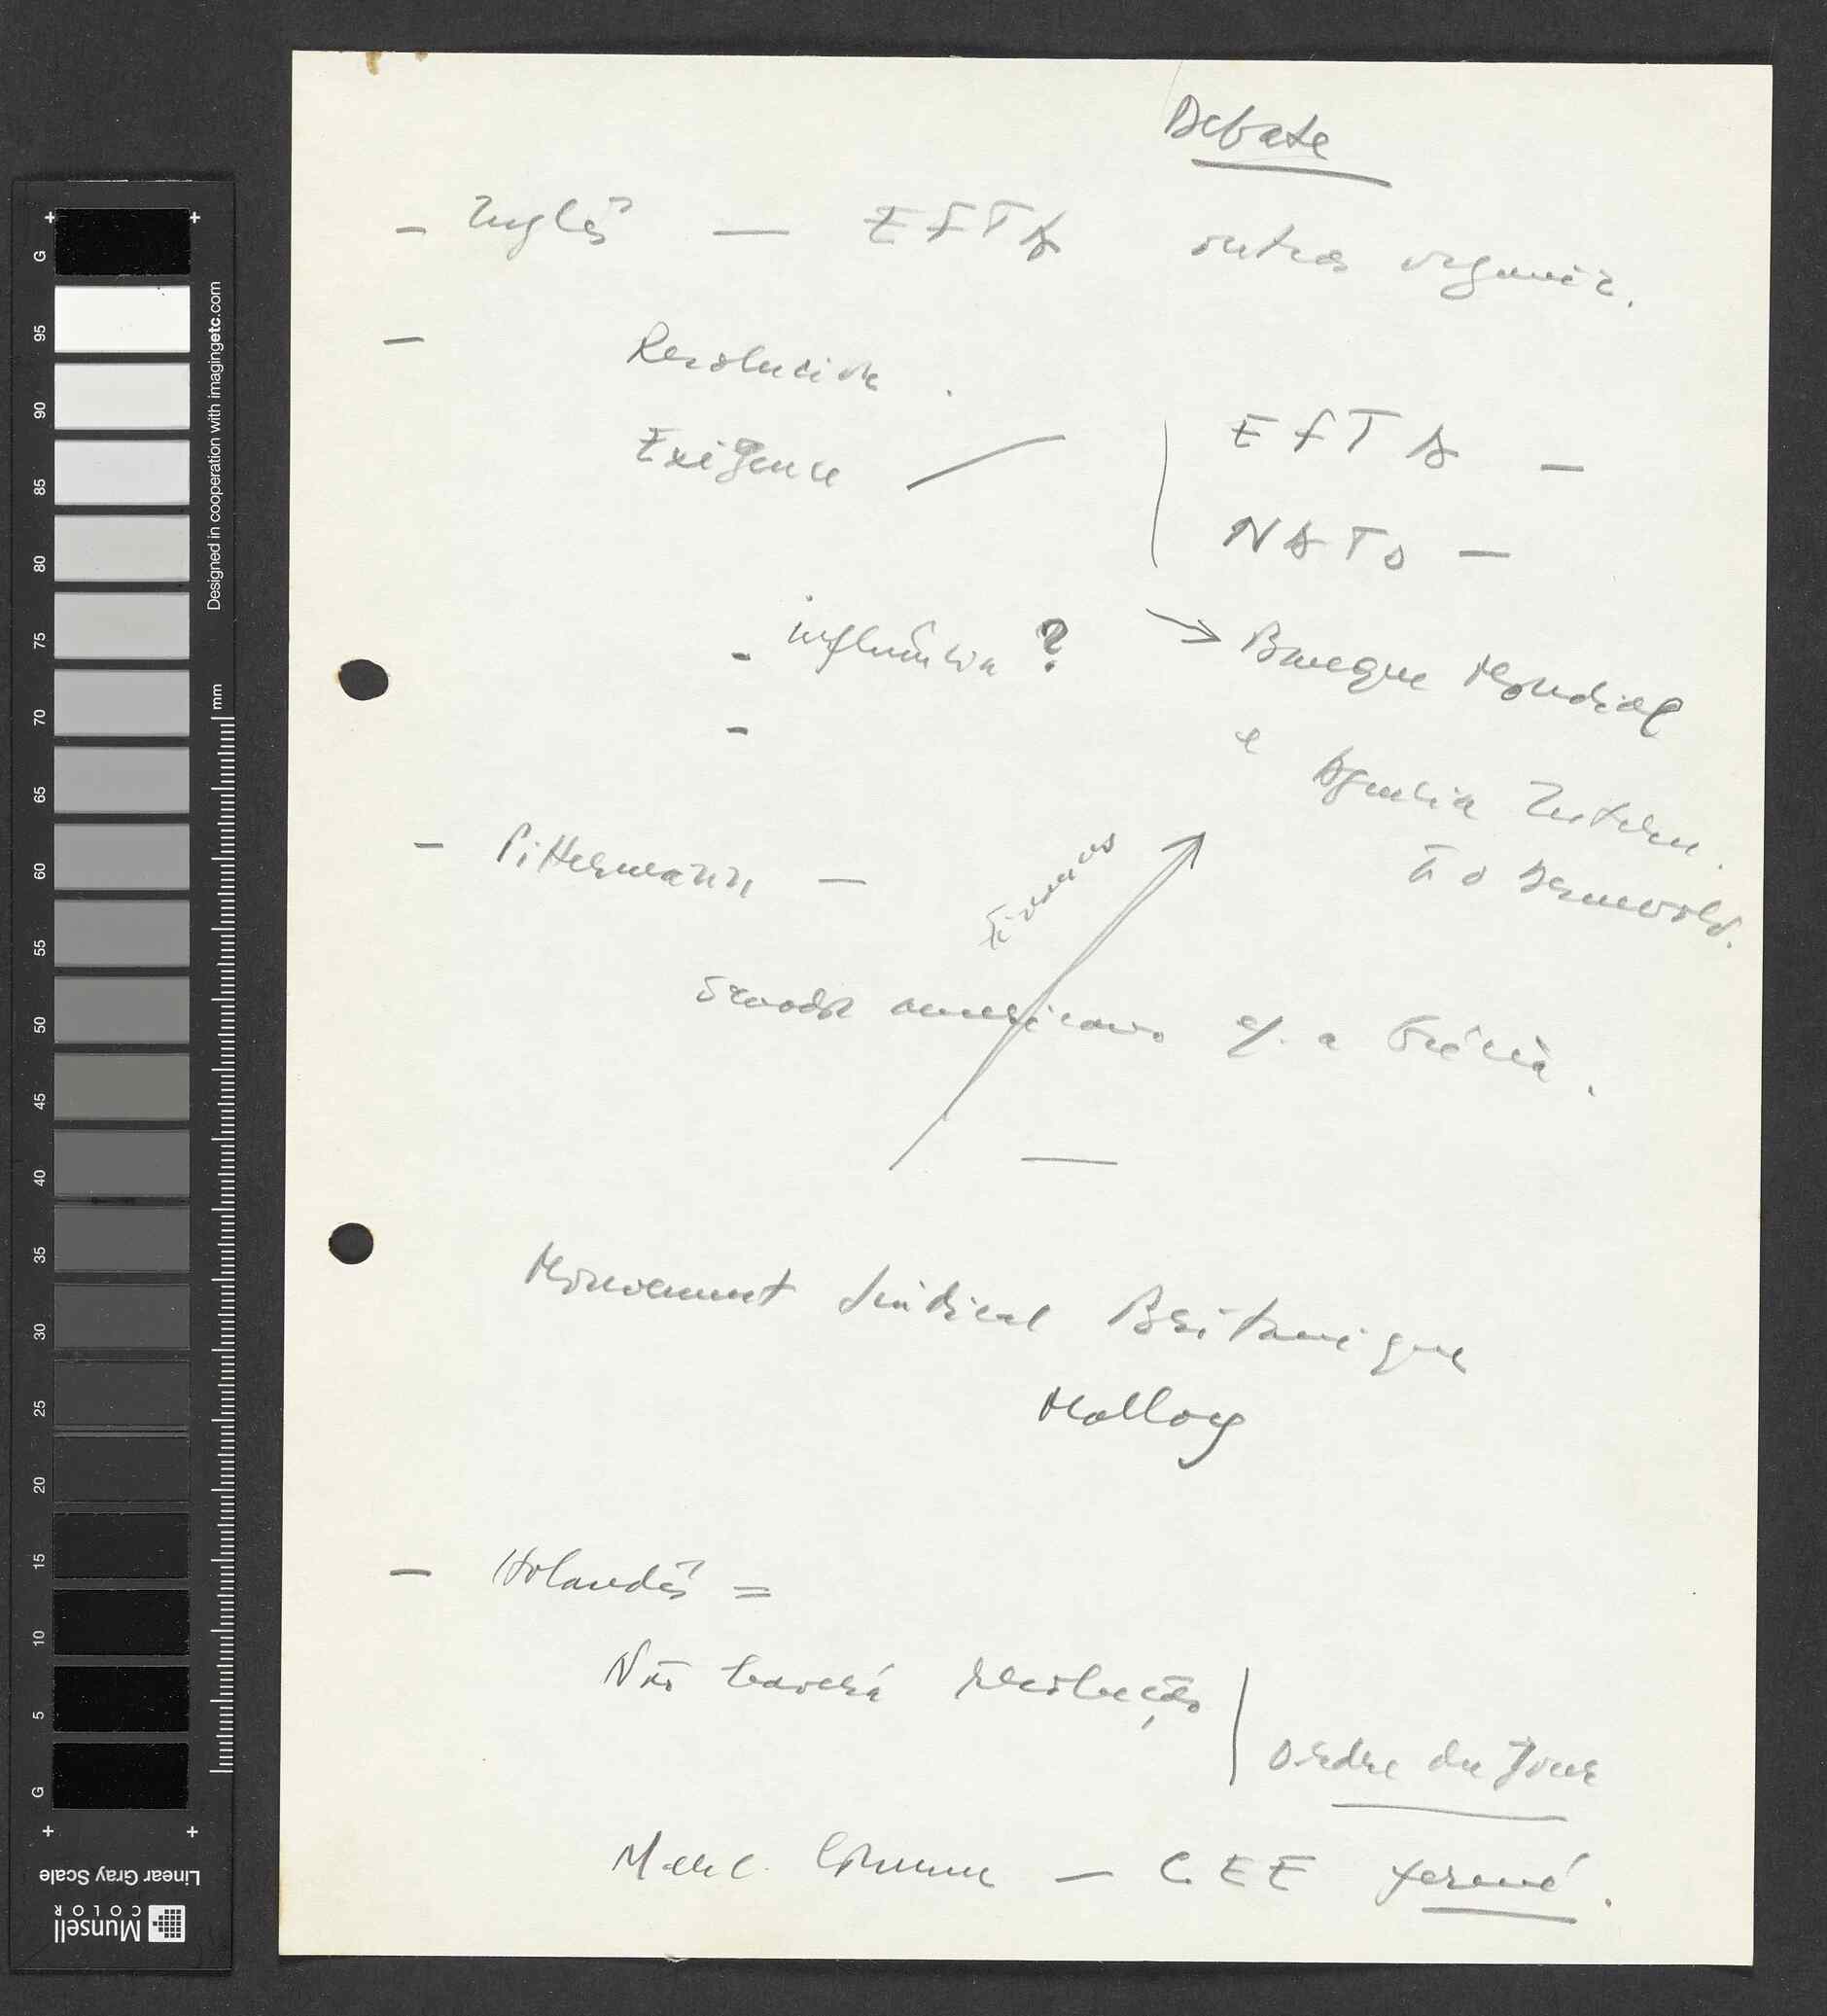 Debate
- Inglês — EFTA outras organiz.
- Resolucion.
Exigence
EFTA -
NATO -
- influência ?
→ Banque Mondial
-
e Agencia Intern.
Pittermann -
Financ
americano p. a Grécia.
—
Mouvement Sindical Britanique
Malloy
- Holandês =
Não haverá resolução
ordre du Jour
Merc. Comum - C.E.E fermé.
G
95
90
85
80
75
70
65
60
55
50
45
40
35
30
25
20
15
10
5
G
mm
Designed in cooperation with imagingetc.com
Linear Gray Scale
Munsell
COLOR